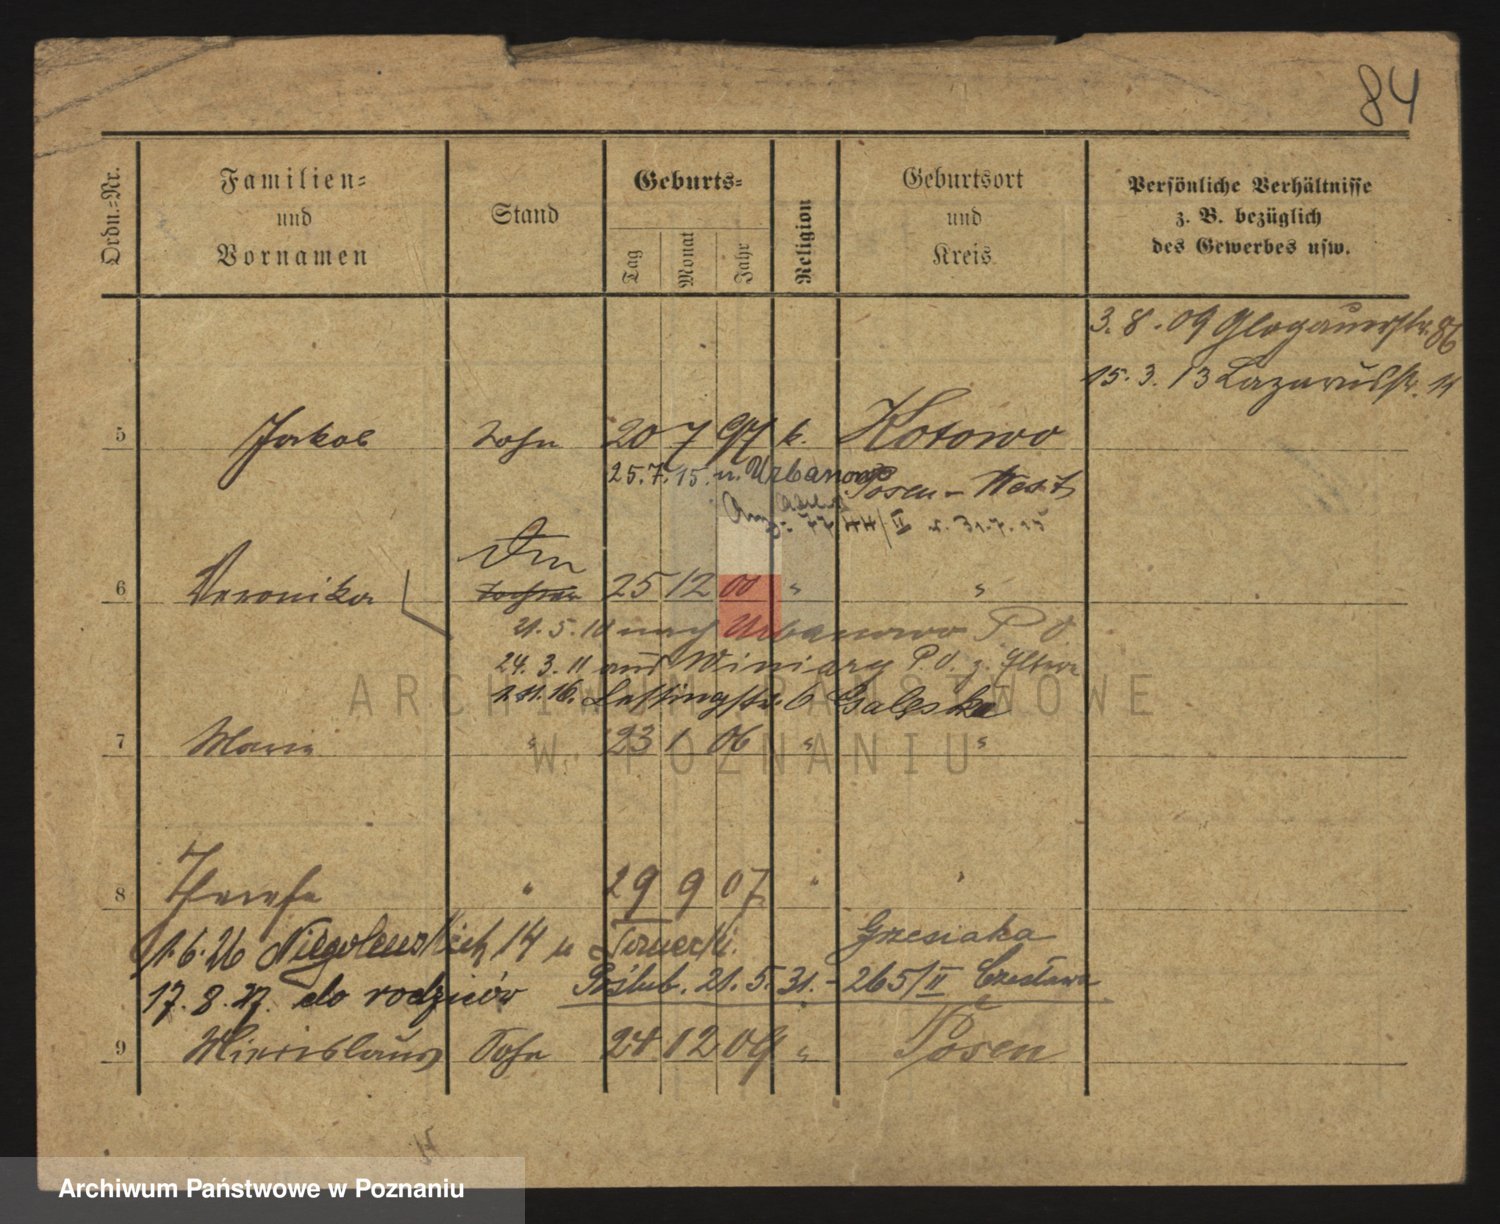 84
Ordn.-Nr.
Familien-
und
Vornamen
Stand
Geburts-
Tag
Monat
Jahr
Religion
Geburtsort
und
Kreis
Persönliche Verhältnisse
z. B. bezüglich
des Gewerbes usw.
3. 8. 09 Glogauerstr. 86
15. 3. 13 Lazarusstr.
5 Jakob Sohn 20 7 k. Kotowo
25. 7. 15. n. Urbanowo Posen-West
6 Veronika Tochter 25 12 00 " "
21. 5. 10 nach Urbanowo P. O
24. 3. 11 aus Winiary P. O. z. Eltern
Lessingstr. 6 Galeska
7 Marie " 23 1 06 " "
8 Therese " 29 9 07 " "
1. 6. 26 14
Grzesiaka
17. 8. 27. do rodziców
Poślub. 21. 5. 31. - 265/II Czesława
9 Sohn 24 12 09 " Posen
ARCHIWUM PAŃSTWOWE
W POZNANIU
Archiwum Państwowe w Poznaniu